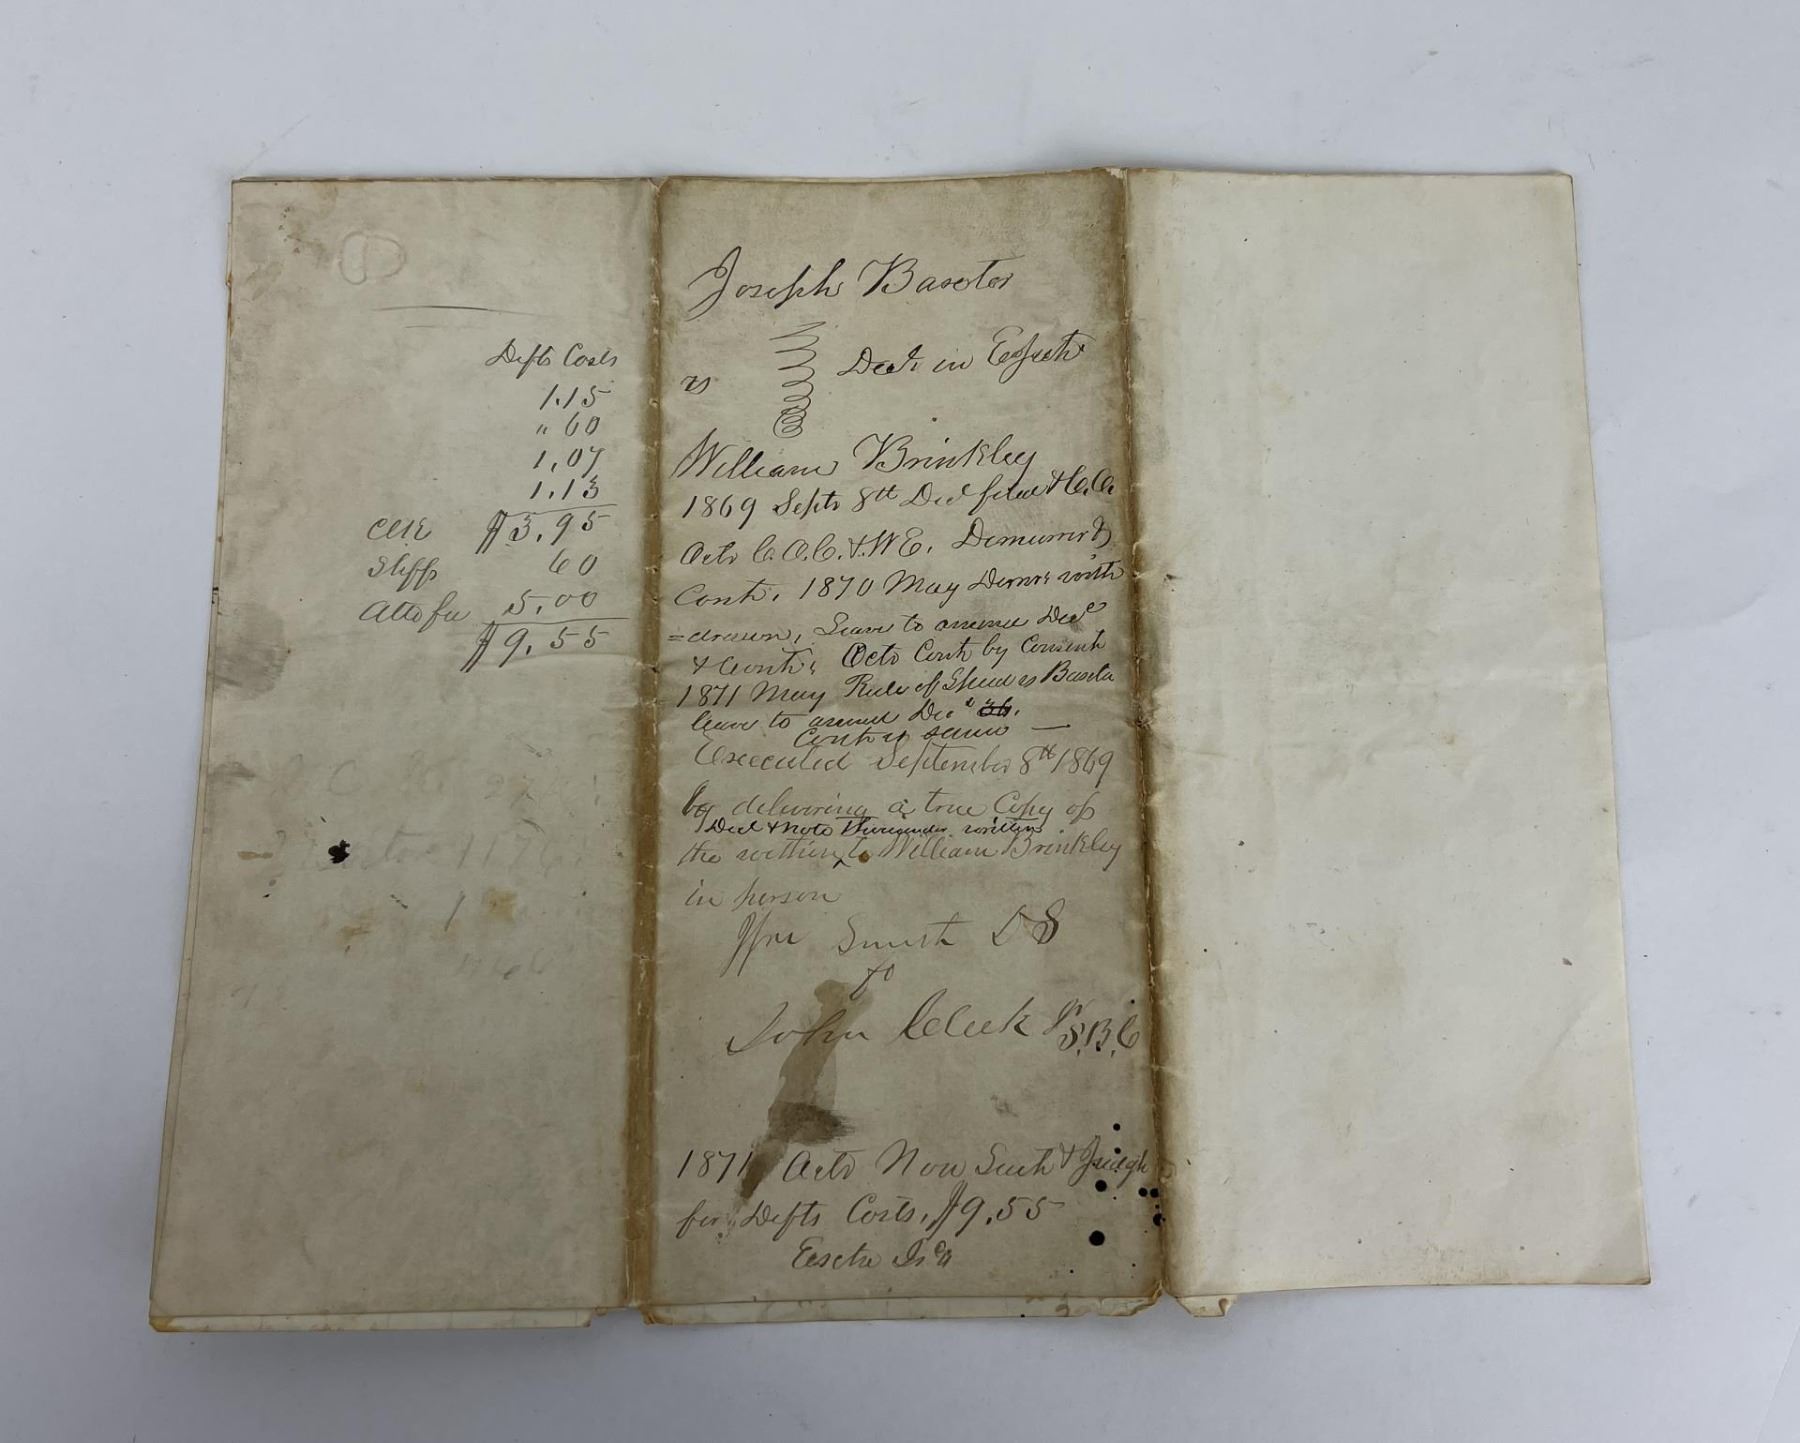 Defts Costs
1.15
" 60
1.07
1.13
Clk $3.95
Shffs 60
Atto fee 5.00
$9.55
Joseph Basetor
vs Decl in Eject
William Brinkley
1869 Sept 8th Decl filed & C.O.
Octr C.O.C. & W.E. Demurrer &
Cont. 1870 May Demr with
=drawn, Leave to amend Decl
& Cont. Octr Cont by Consent
1871 May Rule of Spec vs
leave to amend Decl
Cont
Executed September 8th 1869
by delivering a true Copy of
Decl & note thereunder written
the within ^ to William Brinkley
in person
Wm Smith D S
fo
John Cleek Jr S.B.C
1871 Octr Non Suit & Judgt
for Defts Costs, $9.55